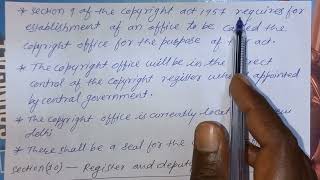 * Section 9 of the copyright act 1957 requires for
establishment of an office to be called the
copyright office for the purpose of the act.
* The copyright office will be in the direct
control of the copyright register who appointed
by central government.
* The copyright office is currently locat
delhi
* There shall be a seal for the
section(10) — Register and deput